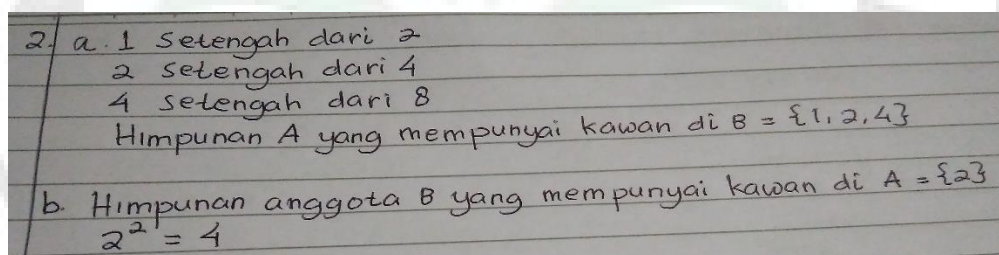 2. a. 1 Setengah dari 2
2 setengah dari 4
4 setengah dari 8
Himpunan A yang mempunyai kawan di B = {1, 2, 4}
b. Himpunan anggota B yang mempunyai kawan di A = {2}
2² = 4